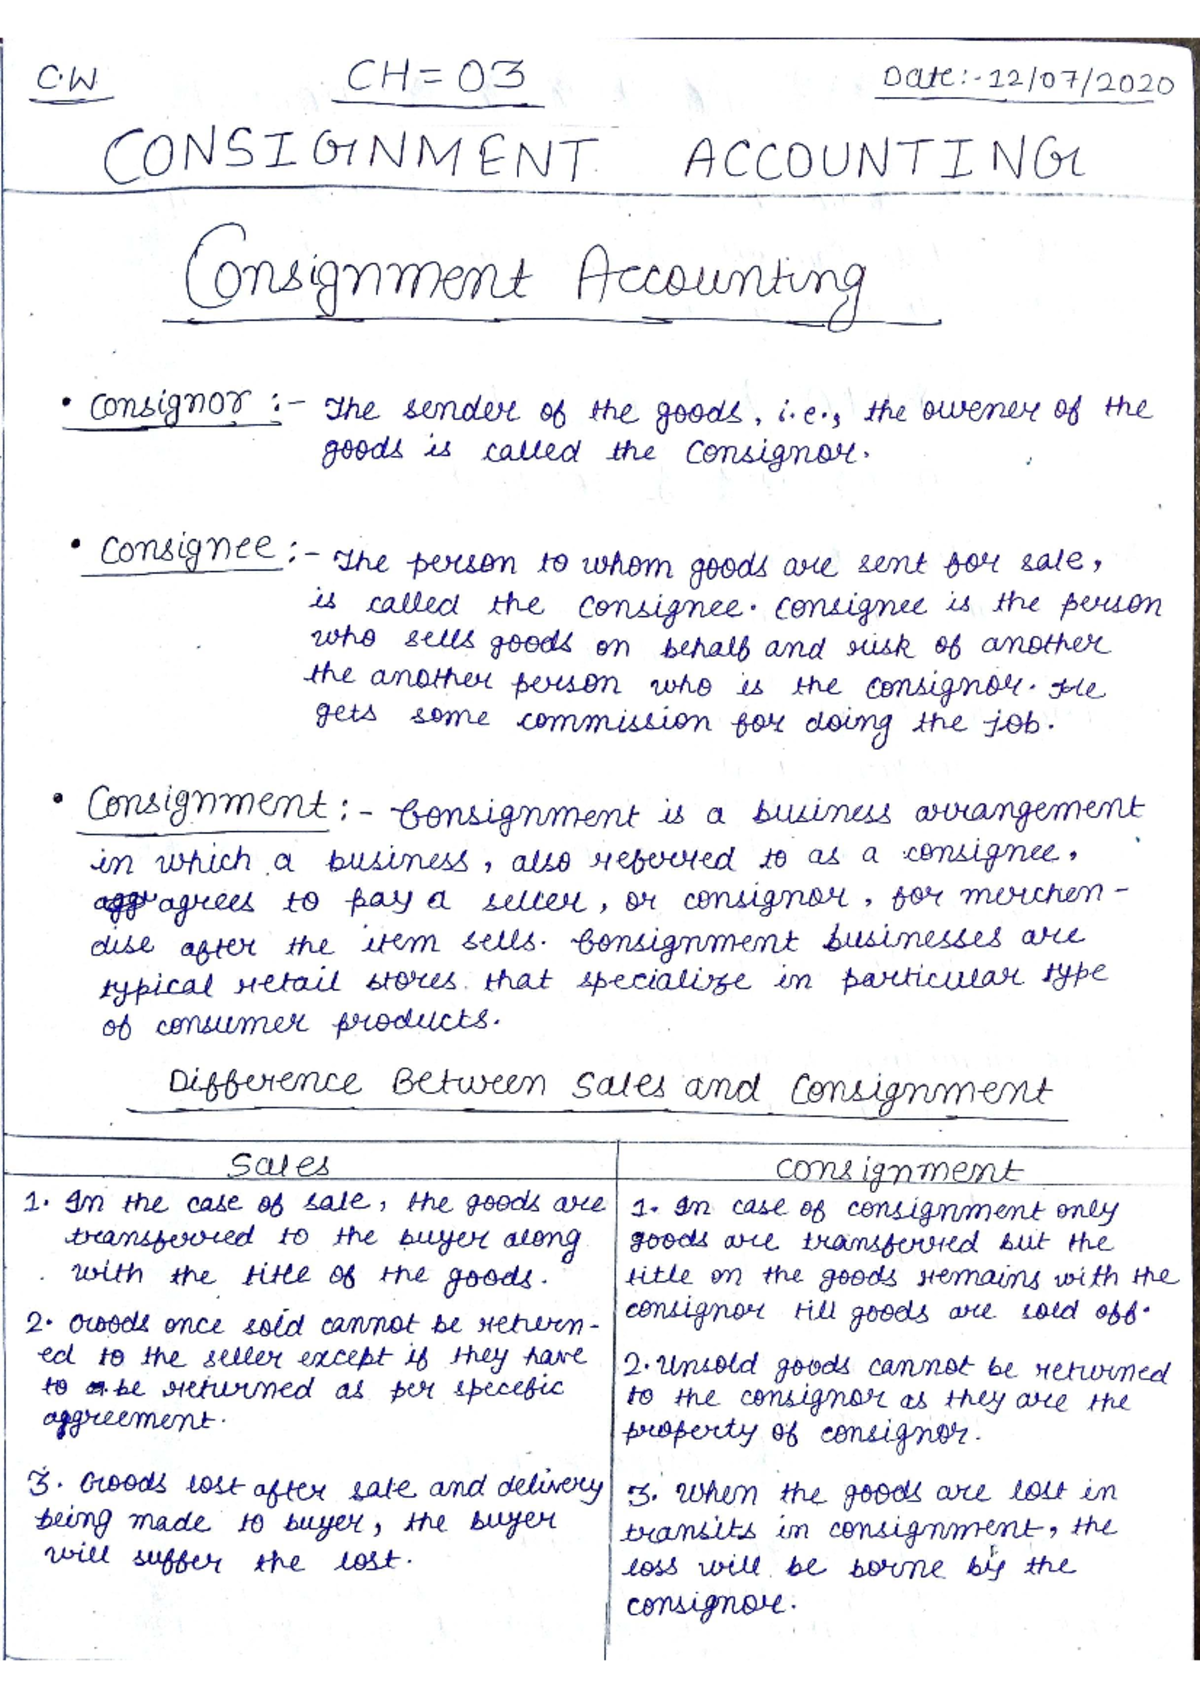 C.W
CH = 03
Date:- 12/07/2020
CONSIGNMENT ACCOUNTING
Consignment Accounting
• Consignor :- The sender of the goods, i.e., the owener of the
goods is called the Consignor.
• Consignee :- The person to whom goods are sent for sale,
is called the consignee. Consignee is the person
who sells goods on behalf and risk of another
the another person who is the consignor. He
gets some commission for doing the job.
• Consignment :- Consignment is a business arrangement
in which a business, also referred to as a consignee,
agrees to pay a seller, or consignor, for merchen-
dise after the item sells. Consignment businesses are
typical retail stores that specialize in particular type
of consumer products.
Difference Between Sales and Consignment
Sales
1. In the case of sale, the goods are
transferred to the buyer along
with the title of the goods.
2. Goods once sold cannot be return-
ed to the seller except if they have
to be returned as per specefic
aggreement.
3. Goods lost after sale and delivery
being made to buyer, the buyer
will suffer the lost.
Consignment
1. In case of consignment only
goods are transferred but the
title on the goods remains with the
consignor till goods are sold off.
2. Unsold goods cannot be returned
to the consignor as they are the
property of consignor.
3. When the goods are lost in
transits in consignment, the
loss will be borne by the
consignor.